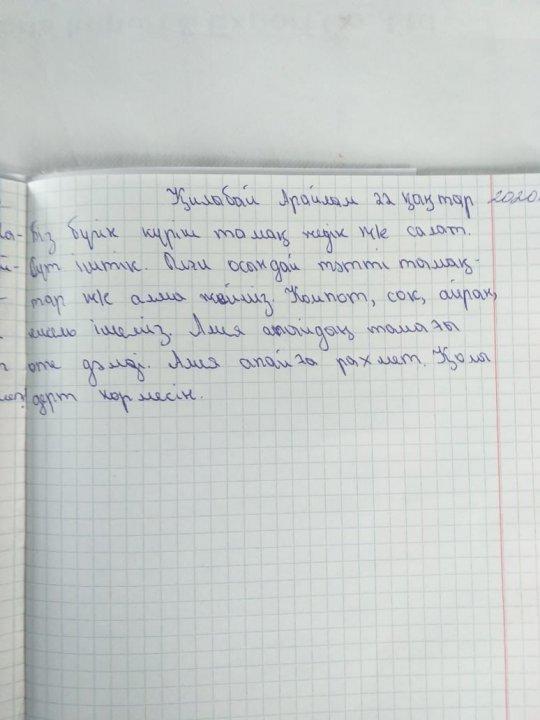 Қилабай Арайлам 22 қаңтар 2020.
Біз бүгін күріш тамақ жедік ж/е салат.
Сүт іштік. Әлгі осындай тәтті тамақ-
тар ж/е алма жейміз. Компот, сок, айран,
кисель ішеміз. Алия апайдың тамағы
өте дәмді. Алия апайға рахмет. Қолы
дерт көрмесін.